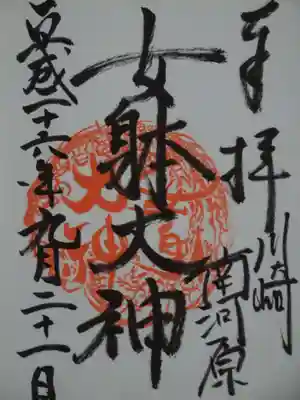 奉拝
川崎
南河原
女躰大神
平成二十六年九月二十一日